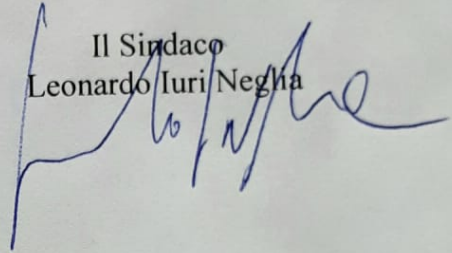 Il Sindaco
Leonardo Iuri Neglia